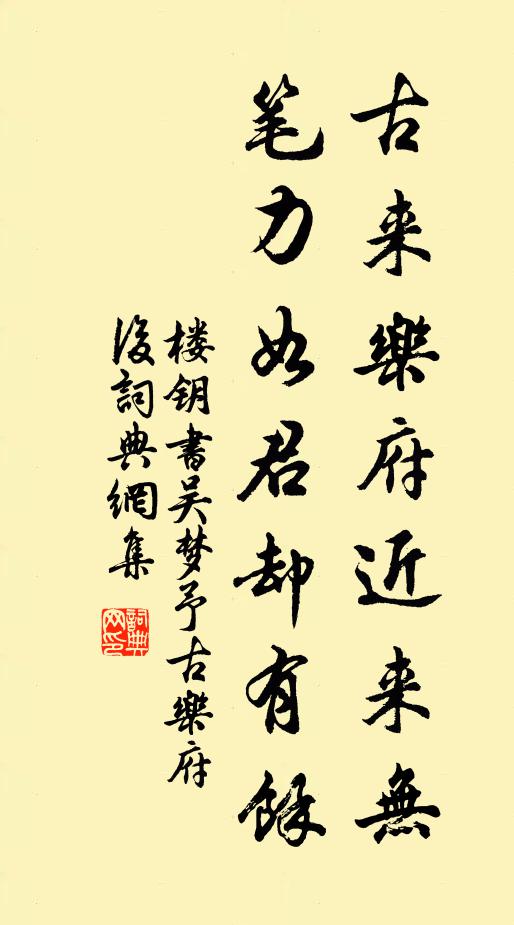 古来樂府近来無
笔力如君却有餘
楼钥書吴梦予古樂府
後詞典網集
詞典网印